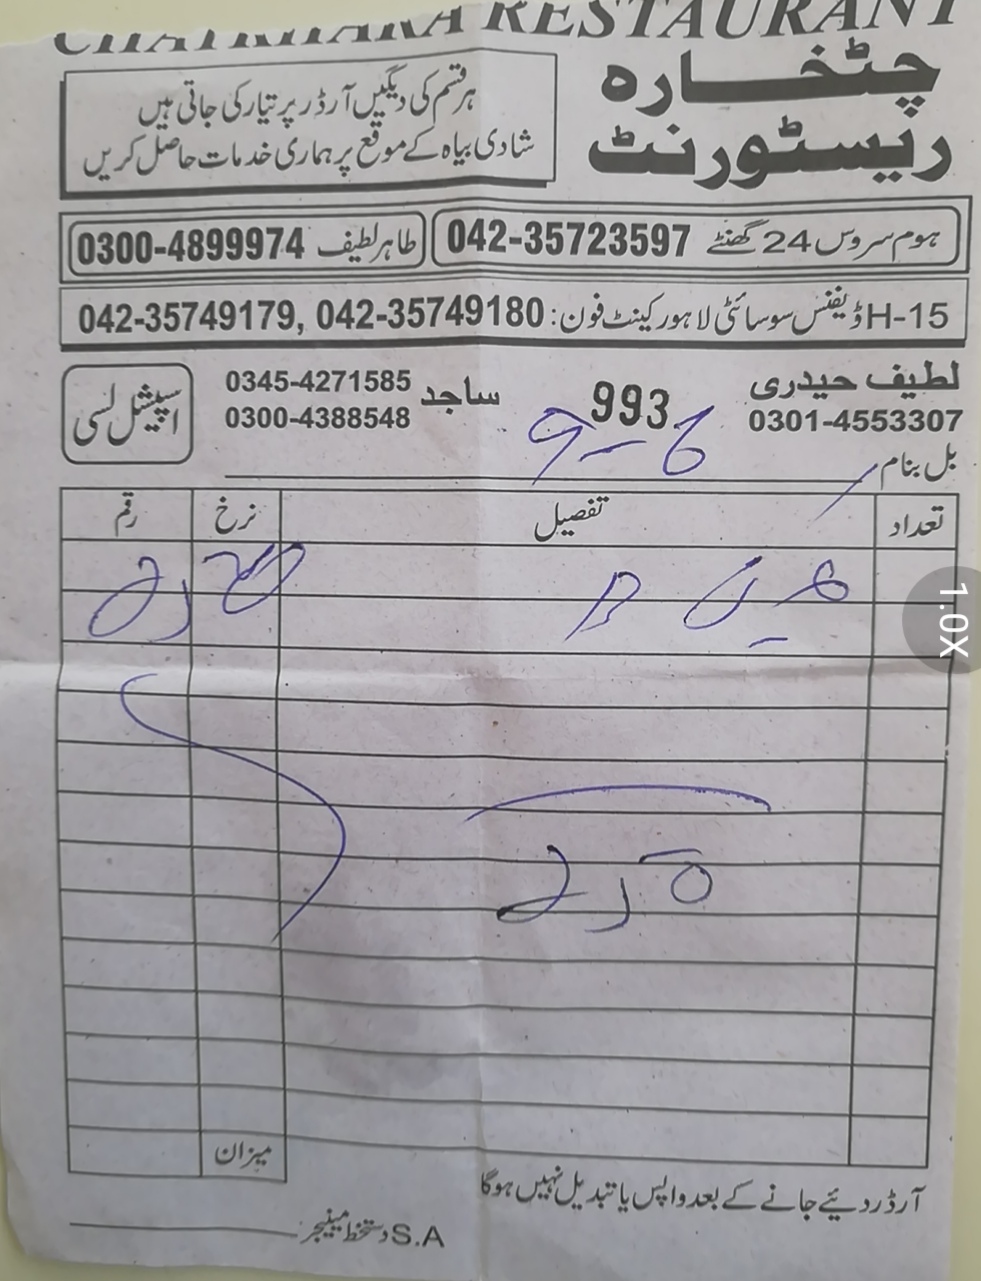 CHATKHARA RESTAURANT
چٹخارہ
ریسٹورنٹ
ہر قسم کی دیگیں آرڈر پر تیار کی جاتی ہیں
شادی بیاہ کے موقع پر ہماری خدمات حاصل کریں
ہوم سروس 24 گھنٹے 042-35723597
طاہر لطیف 0300-4899974
H-15 ڈیفنس سوسائٹی لاہور کینٹ فون: 042-35749179, 042-35749180
لطیف حیدری
0301-4553307
993
ساجد 0345-4271585
0300-4388548
اسپیشل لسی
بل بنام
تعداد تفصیل نرخ رقم
میزان
آرڈر دئیے جانے کے بعد واپس یا تبدیل نہیں ہوگا
S.A دستخط مینیجر:
1.0X